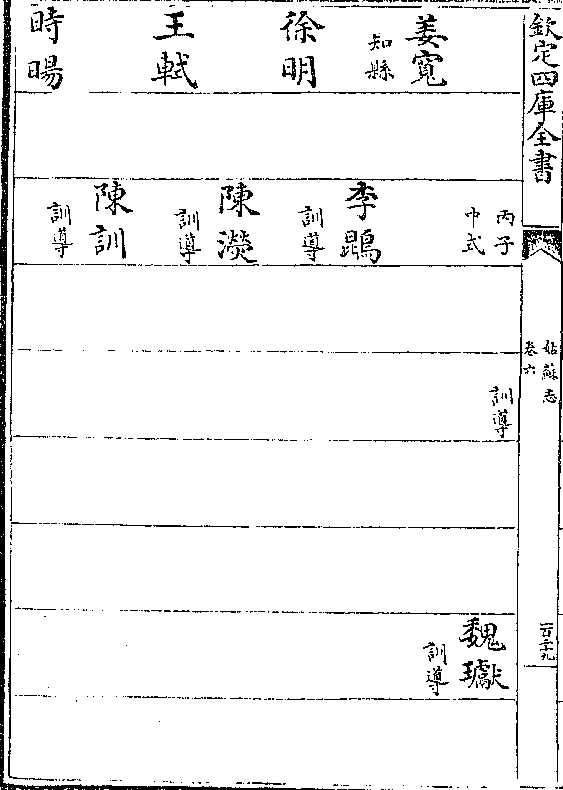 欽定四庫全書
姑蘇志
卷六
姜寬
知縣
徐明
王軾
時暘
丙子
中式
李鵾
訓導
陳濙
訓導
陳訓
訓導
訓導
魏瓛
訓導